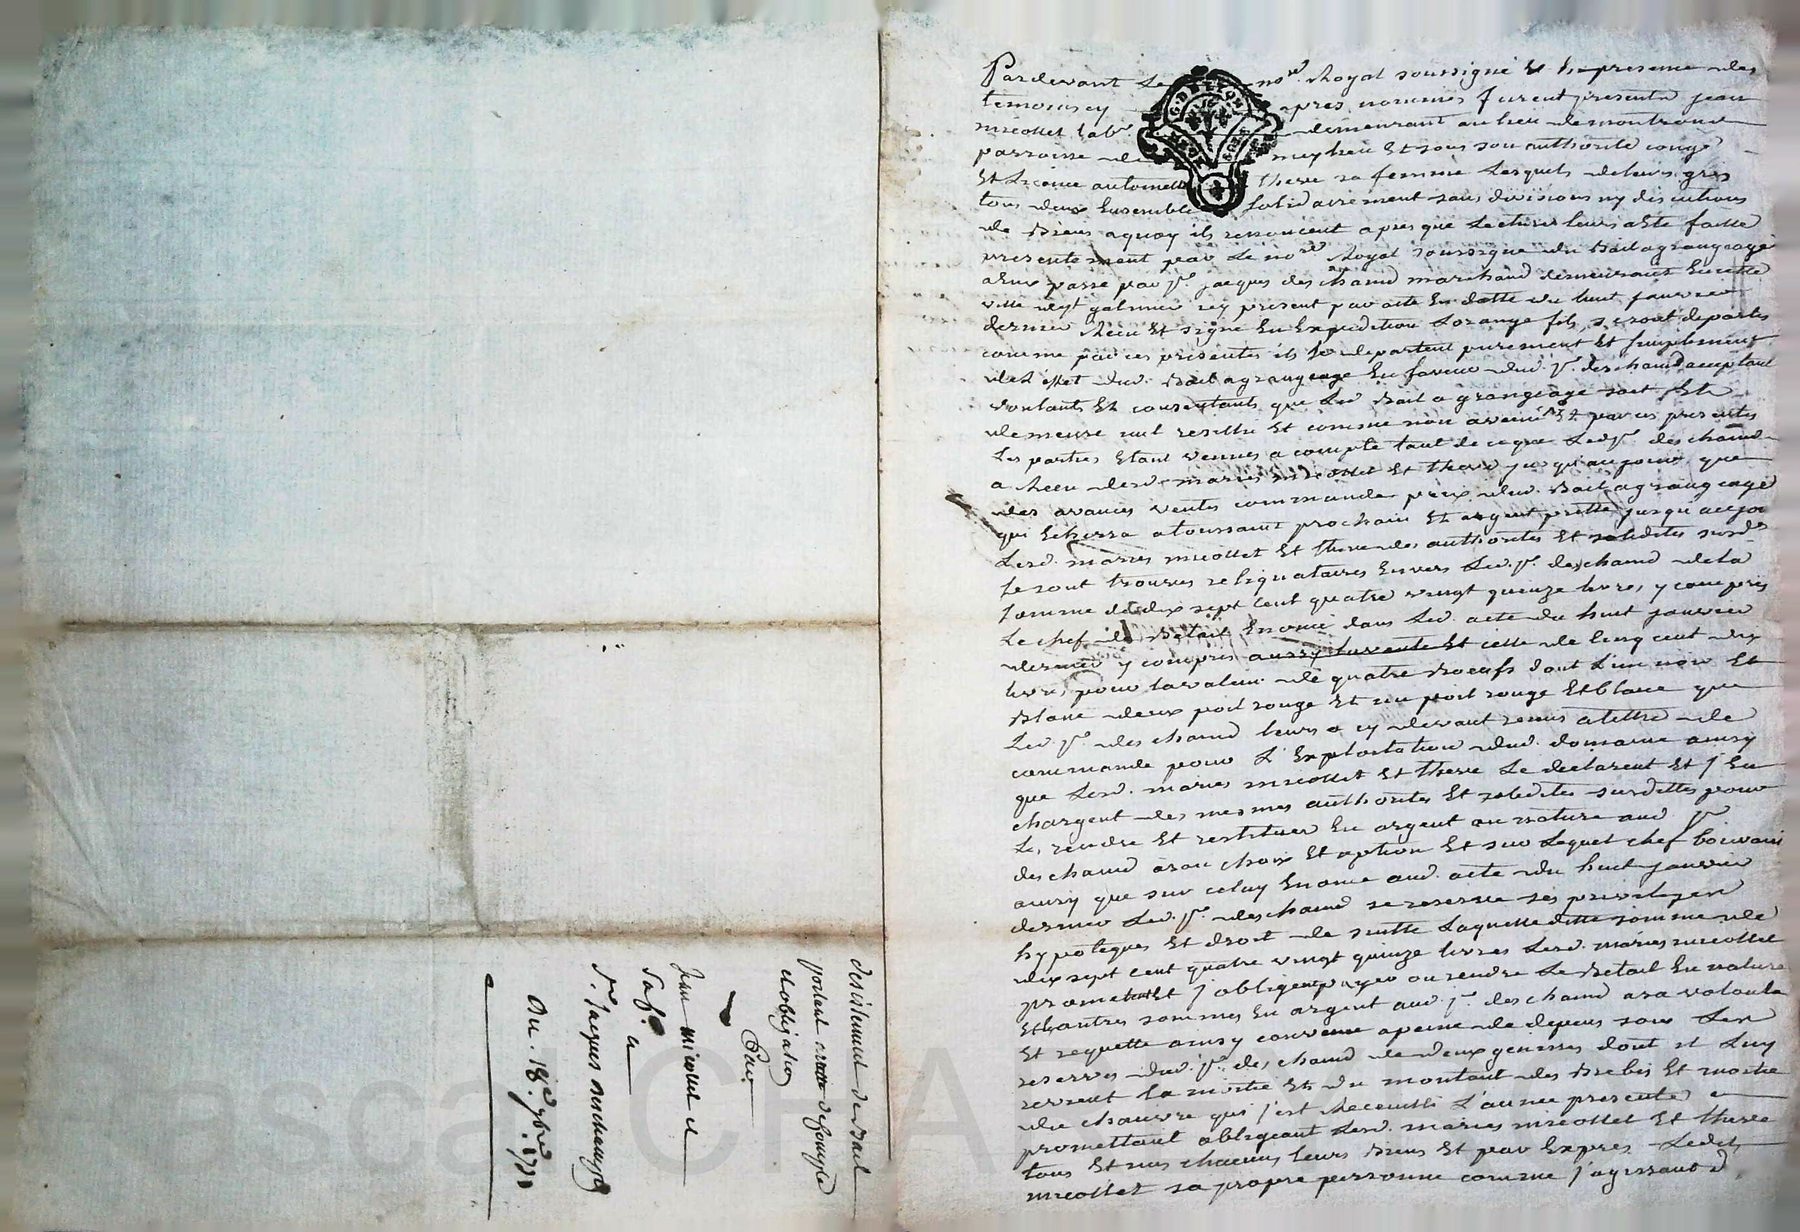 Pardevant Le no.re Royal soussigné Et En presence des
temoins cy apres nommés furent presents jean
micollet lab.r demeurant au lieu de montrond
parroisse de meylieu Et sous son authorité congé
Et Licence antoinette there sa femme Lesquels de leurs grés
tous deux Ensemble Solidairement sans divisions ny discutions
de Biens aquoy ils renoncent apres que Lecture leurs a Eté faitte
presentement par Le no.re Royal soussigné du Bail a grangeage
a Eux passé par s.r jacques deschamd marchand demeurant En cette
ville de s.t galmier icy present par acte En datte du huit janvier
dernier Receu Et signé En Expedition Lorange fils, se sont departis
comme par ces presentes ils se departent purement Et simplement
de L'effet dud. Bail a grangeage En faveur dud. s.r deschamd acceptant
voulants Et consentants que Led. Bail a grangeage soit Et
demeure nul resillié Et comme non avenu Et par ces presentes
Les parties Etant venues a compte tant de ce que Led. s.r deschamd
a Receu desd. mariés micollet Et there jusqu'au jourd. que
des avances ventes commande prix dud. Bail a grangeage
qui Echerra a toussaint prochain Et argent pretté jusqu'a ce jour
Lesd. mariés micollet Et there des authorités Et solidités susd.
se sont trouvés reliquataires Envers Led. s.r deschamd de la
somme de dix sept cent quatre vingt quinze livres, y compris
Le chef de Betail Enoncé dans Led. acte du huit janvier
dernier y compris aussy la vente Et celle de cinq cent dix
livres pour la valeur de quatre Boeufs dont L'un noir Et
Blanc deux poil rouge Et un poil rouge Et blanc que
Led. s.r deschamd leurs a cy devant remis a tittre de
commande pour L'Exploitation dud. domaine ainsy
que Lesd. mariés micollet Et there Le declarent Et s'En
chargent des mesmes authorités Et solidités susdittes pour
Les rendre Et restituer En argent ou nature aud. s.r
deschamd a son choix Et option Et sur Lequel chef
ainsy que sur celuy Enoncé aud. acte du huit janvier
dernier Led. s.r deschamd se reserve ses privileges
hypoteques Et droit de suitte Laquelle ditte somme de
dix sept cent quatre vingt quinze livres Lesd. mariés micollet
promettent Et s'obligent payer ou rendre Le Betail En nature
Et L'autres sommes En argent aud. s.r deschamd a sa volonté
Et requette ainsy convenu a peine de depens sous Les
reserves dud. s.r deschamd de deux genisses dont il Luy
revient la moitié Et du montant des Brebis Et moitié
du chanvre qui s'est Recueilli L'année presente
promettant obligeant Lesd. mariés micollet Et there
tous Et uns chacuns leurs Biens Et par Exprès Ledit
micollet sa propre personne comme s'agissant d
desistement de Bail
portant
et obligation
Par
Jean micollet et
sa f.e
a
S.r Jacques deschamps
Du. 18.e 9bre
Pascal CHA